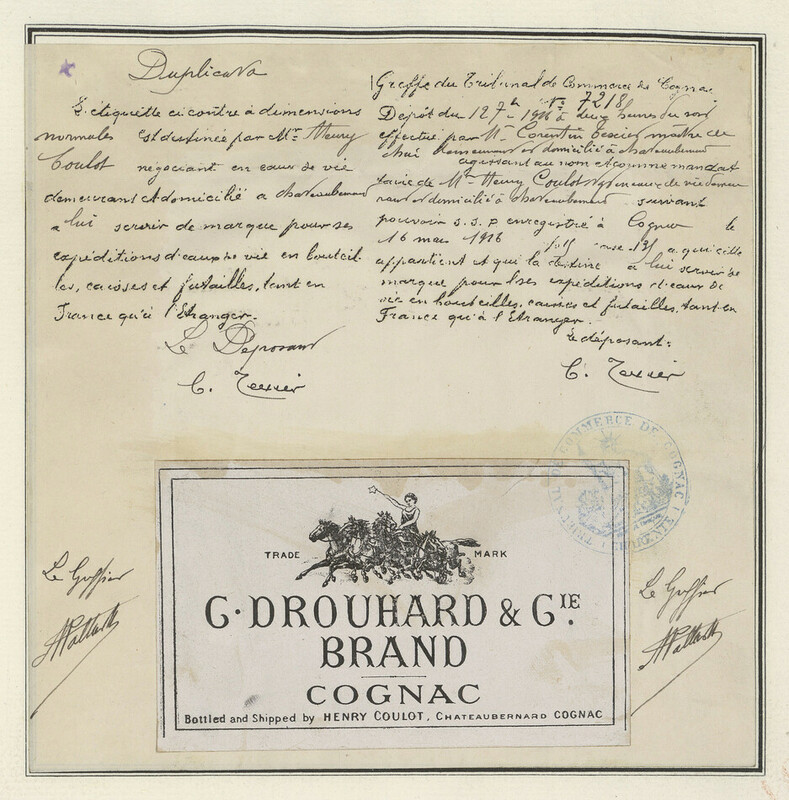 Duplicata
L'étiquette ci contre à dimensions
normales est destinée par Mr Henry
Coulot négociant en eaux de vie
demeurant et domicilié à chateaubernard
à lui servir de marque pour ses
expéditions d'eaux de vie en bouteil
les, caisses et futailles, tant en
France qu'à l'Etranger.
Le Déposant
C. Texier
Greffe du Tribunal de Commerce de Cognac
No 7218
Dépôt du 12 7h 1926 à deux heures du soir
effectué par Mr Corentin Texier maître de
chai demeurant et domicilié à chateaubernard
agissant au nom et comme mandat
taire de Mr Henry Coulot négt en eaux de vie demeu
rant et domicilié à chateaubernard suivant
pouvoir s.s.p enregistré à Cognac le
16 mars 1926 case 131 à qui elle
appartient et qui la destine à lui servir de
marque pour ses expéditions d'eaux de
vie en bouteilles, caisses et futailles, tant en
France qu'à l'Etranger.
Le déposant:
C. Texier
TRIBUNAL DE COMMERCE DE COGNAC (CHARENTE)
Le Greffier
Le Greffier
TRADE MARK
C. DROUHARD & CIE.
BRAND
COGNAC
Bottled and Shipped by HENRY COULOT, CHATEAUBERNARD COGNAC